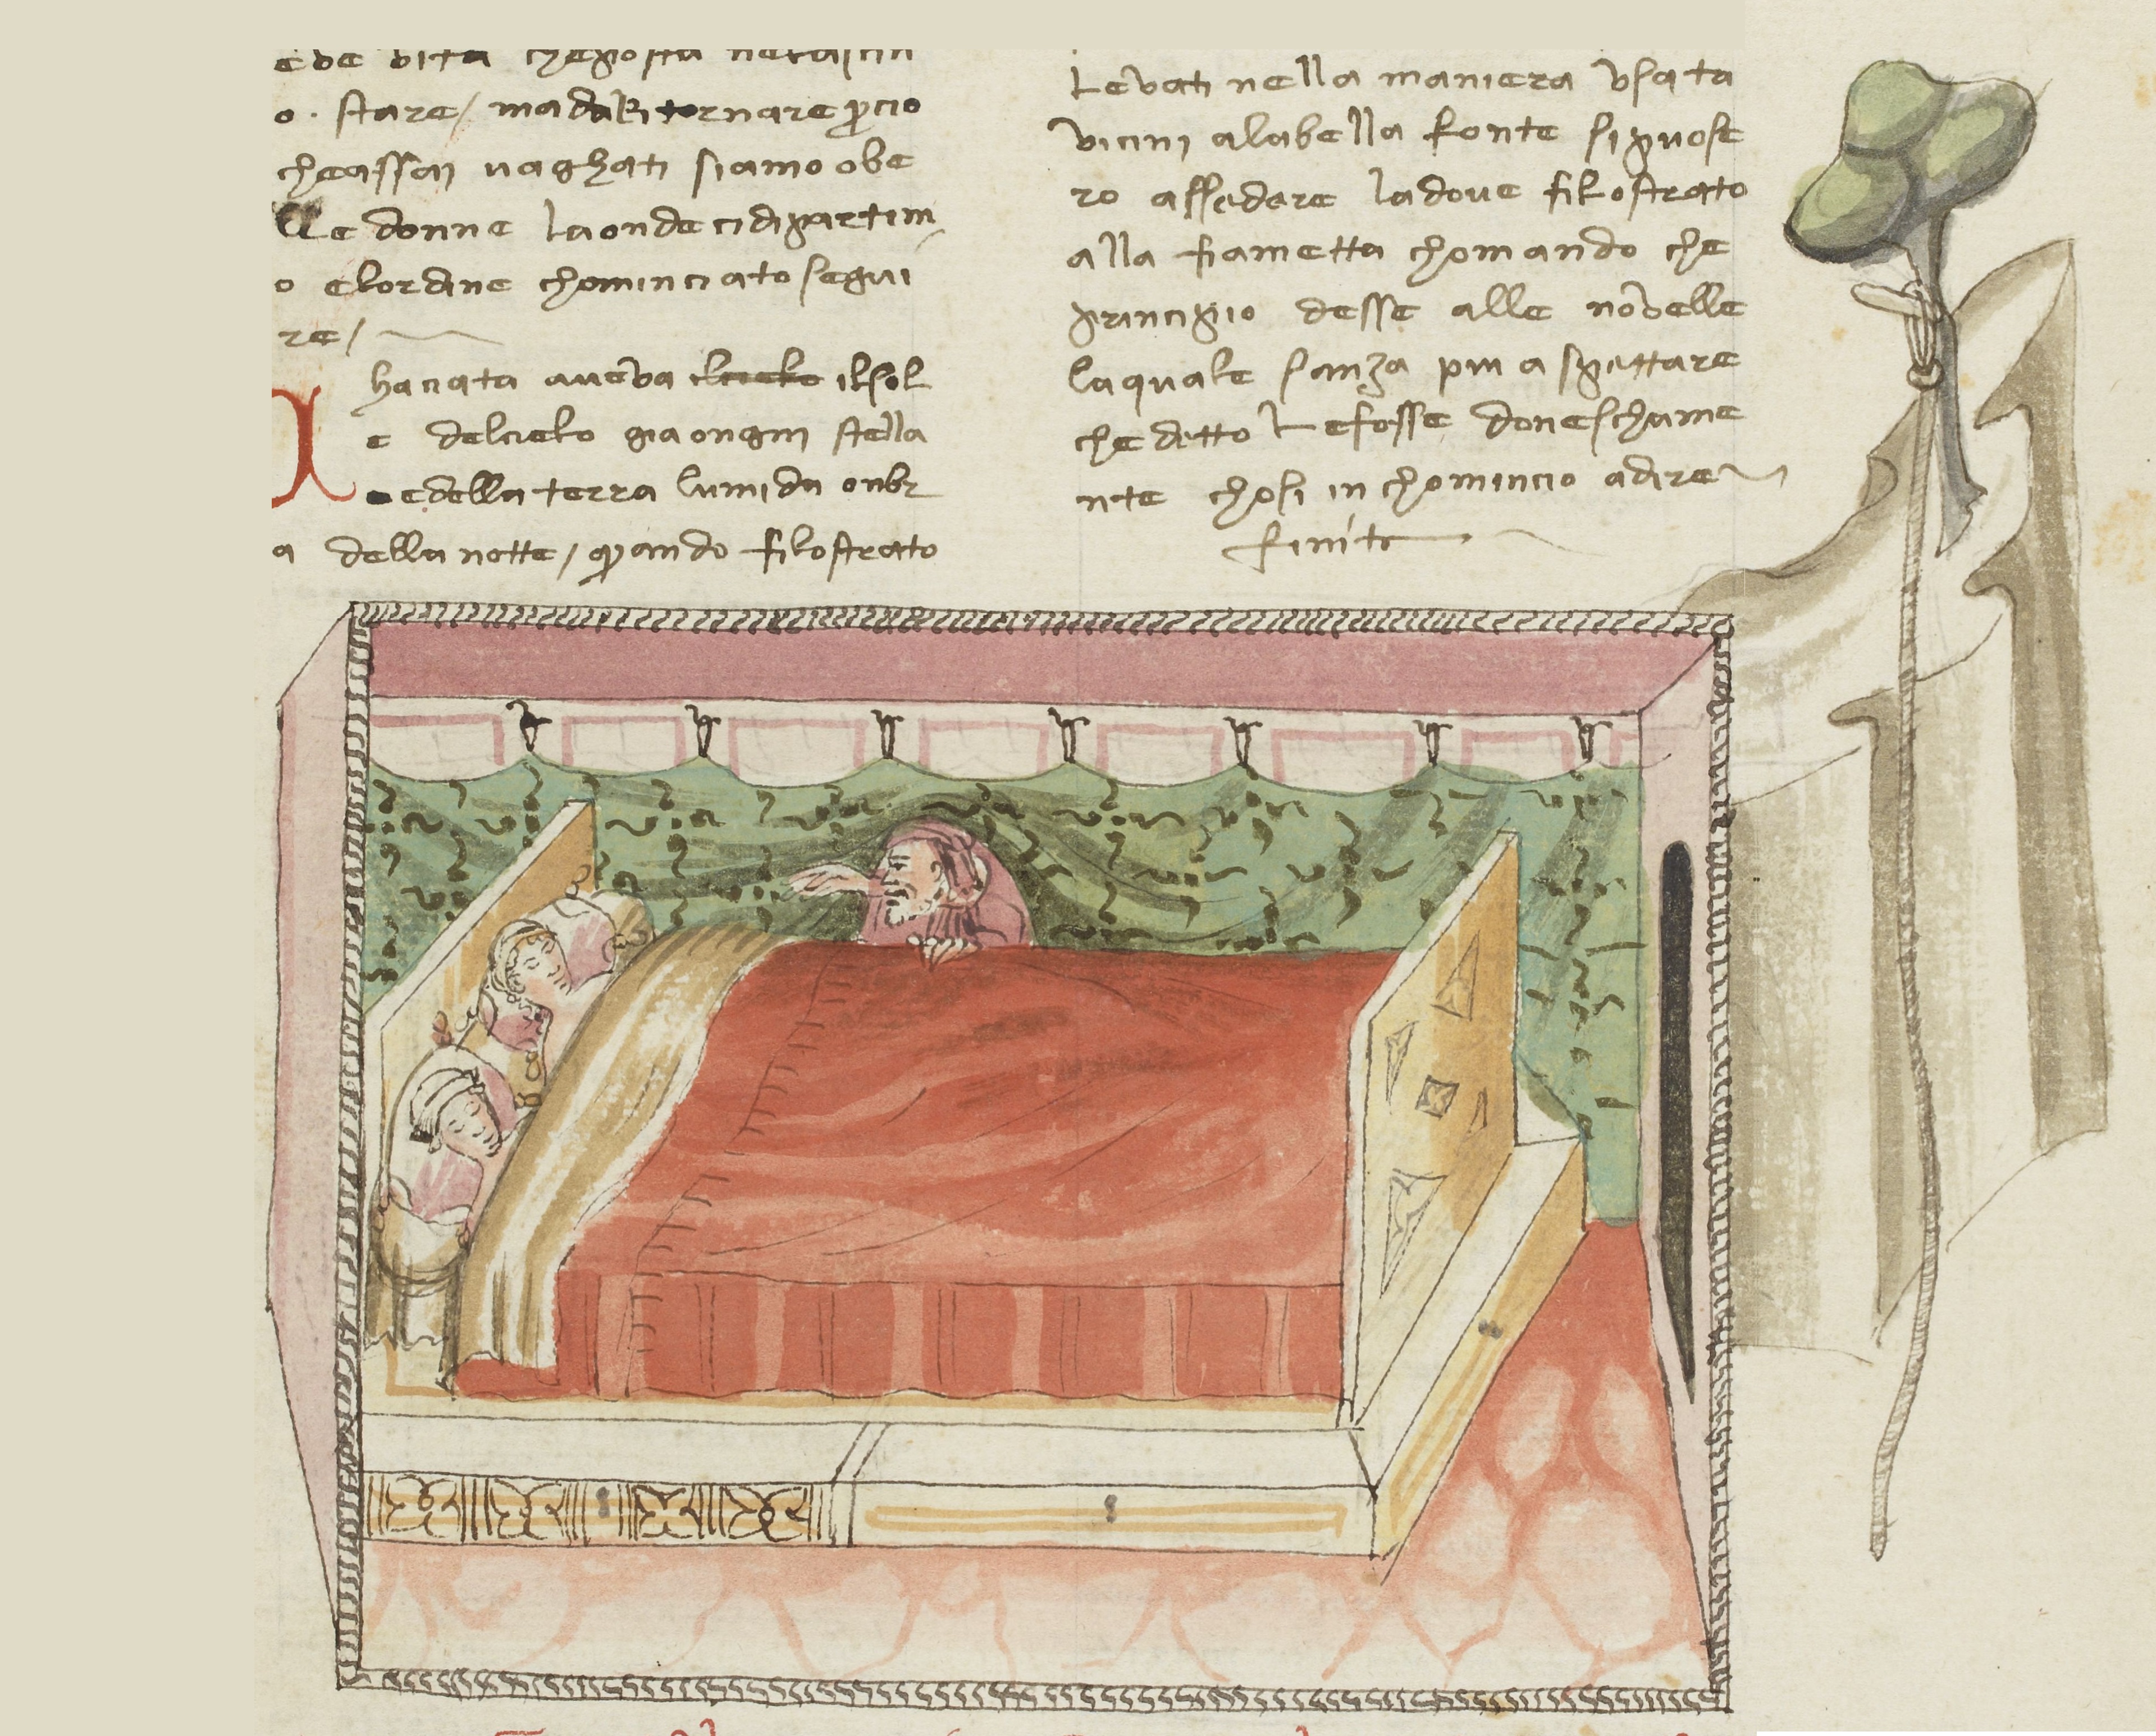 e de vita
o. stare / ma da tornare p cio
che assai vaghati siamo o be
lle donne la onde ci dipartim
o e lordine chominciato segui
re /
hanata aveva il sol
e del cielo gia ongni stella
e della terra lumida onbr
a della notte / quando filostrato
Levati nella maniera vsata
vicini ala bella fonte si puose
ro assedere la dove filostrato
alla fiametta chomando che
principio desse alle novelle
la quale sanza piu aspettare
che detto Le fosse doneschame
nte chosi in chomincio a dire
finito